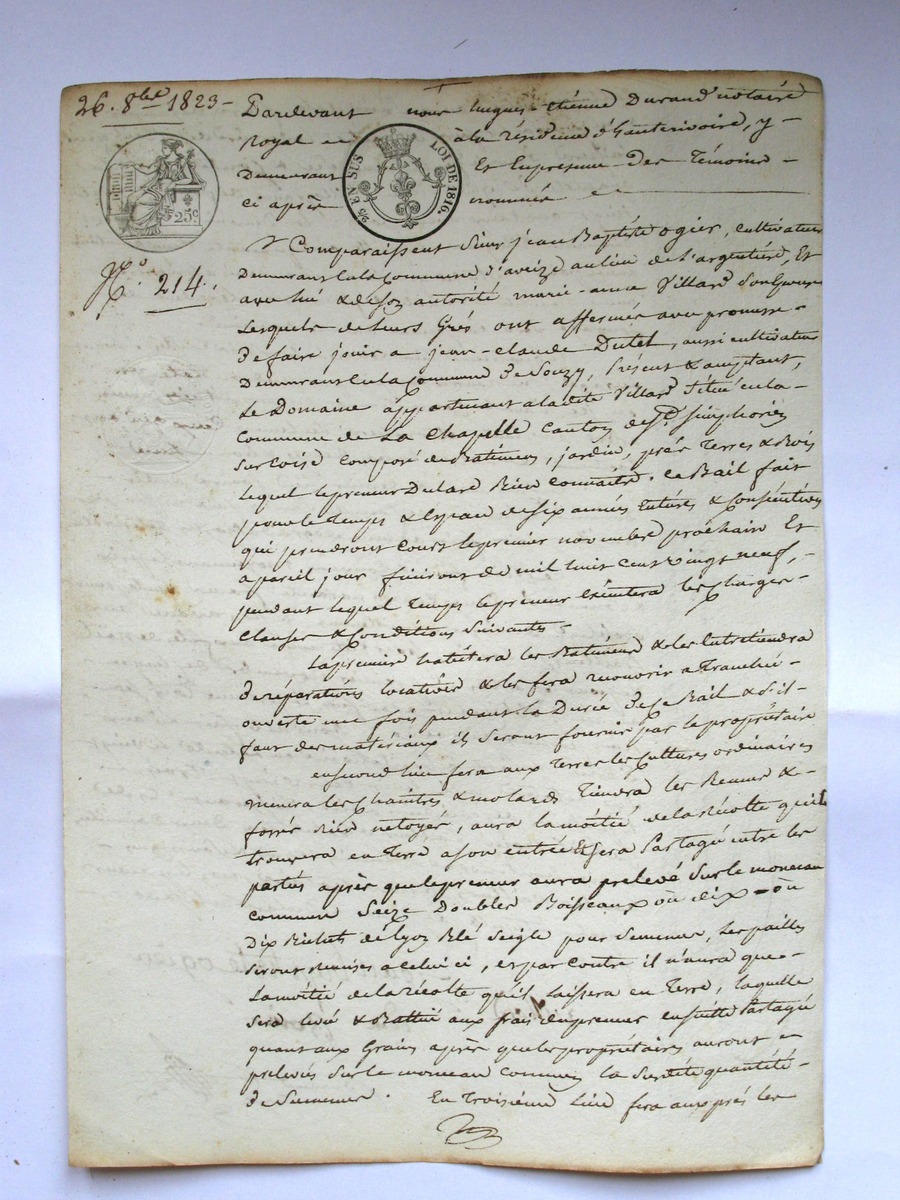 26. 8bre 1823 -
Pardevant nous hugues-étienne Durand notaire
Royal à la résidence d'hauterivoire, y
Demeurant Et En presence Des Témoins -
ci après nommés
25 EN SUS LOI DE 1816.
25c
No. 214.
Comparaissent Sieur jean Baptiste ogier, cultivateur
Demeurant En la Commune d'aveize au lieu de l'argentiere, Et
avec lui & de son autorité marie-anne Villard Son Epouse
Lesquels de leurs Grés ont affermés avec promesse -
De faire jouir a jean-claude Dutel, aussi cultivateur
Demeurant En la Commune De Souzy, Présent & acceptant,
Le Domaine appartenant à la dite Villard Situé en la -
Commune de La Chapelle Canton de St. Simphorien
Sur Coise Composé de Batimens, jardin, prés Terres & Bois
Lequel le preneur Declare Bien Connaitre. Ce Bail fait
pour le Temps & Espace de six années Entières & Consécutives
qui prendront Cours le premier novembre prochain Et
a pareil jour finiront de mil huit cent vingt neuf,
pendant lequel Temps le preneur Exécutera les Charges -
Clauses & Conditions Suivantes -
La premiere les Batimens & les Entretiendra
De réparations locatives & les fera recouvrir a Tranchée -
ouverte une fois pendant la Durée De ce Bail & S'il
faut des matériaux ils Seront fournis par le propriétaire
en Second lieu fera aux Terres les Cultures ordinaires
menera les Chaintres & molards Tiendra les &
fossés Bien netoyés, aura la moitié de la récolte qu'il
trouvera en Terre a son entrée Et Sera Partagé entre les
parties après que le preneur aura prelevé Sur le monceau
commun Seize Doubles Boisseaux où dix où
Dix Bichets de Lyon Blé Seigle pour Semence, Les pailles
Seront remises a Celui ci, et par Contre il n'aura que -
La moitié de la récolte qu'il Laissera en Terre, laquelle
Sera levée & Battue aux frais du preneur ensuite Partagé
quant aux Grains après que les propriétaires auront
prelevés Sur le monceau Commun la Susdite quantité -
De Semences. En Troisieme Lieu fera aux prés les